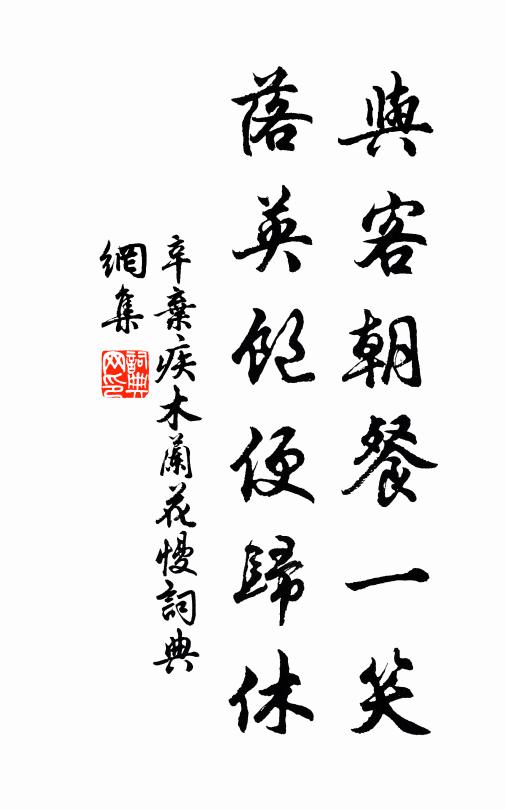 與客朝餐一笑
落英飽便歸休
辛棄疾木蘭花慢詞典
網集
詞典
网印